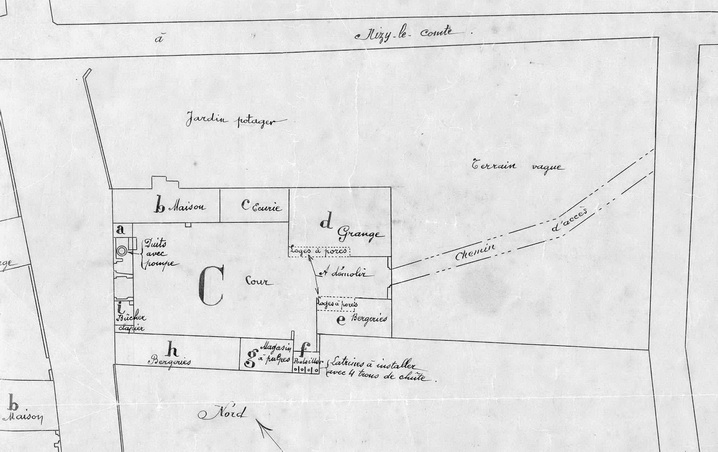 à Nizy-le-Comte.
Jardin potager
Terrain vague
b Maison
c Ecurie
d Grange
a
Puits
avec
pompe
Loges à porcs
Chemin d'accès
C Cour
A démolir
Loges à porcs
i
Bûcher
clapier
e Bergeries
h
Bergeries
g Magasin
à pulpes
f
Latrines à installer
avec 4 trous de chûte.
b
Maison
Nord